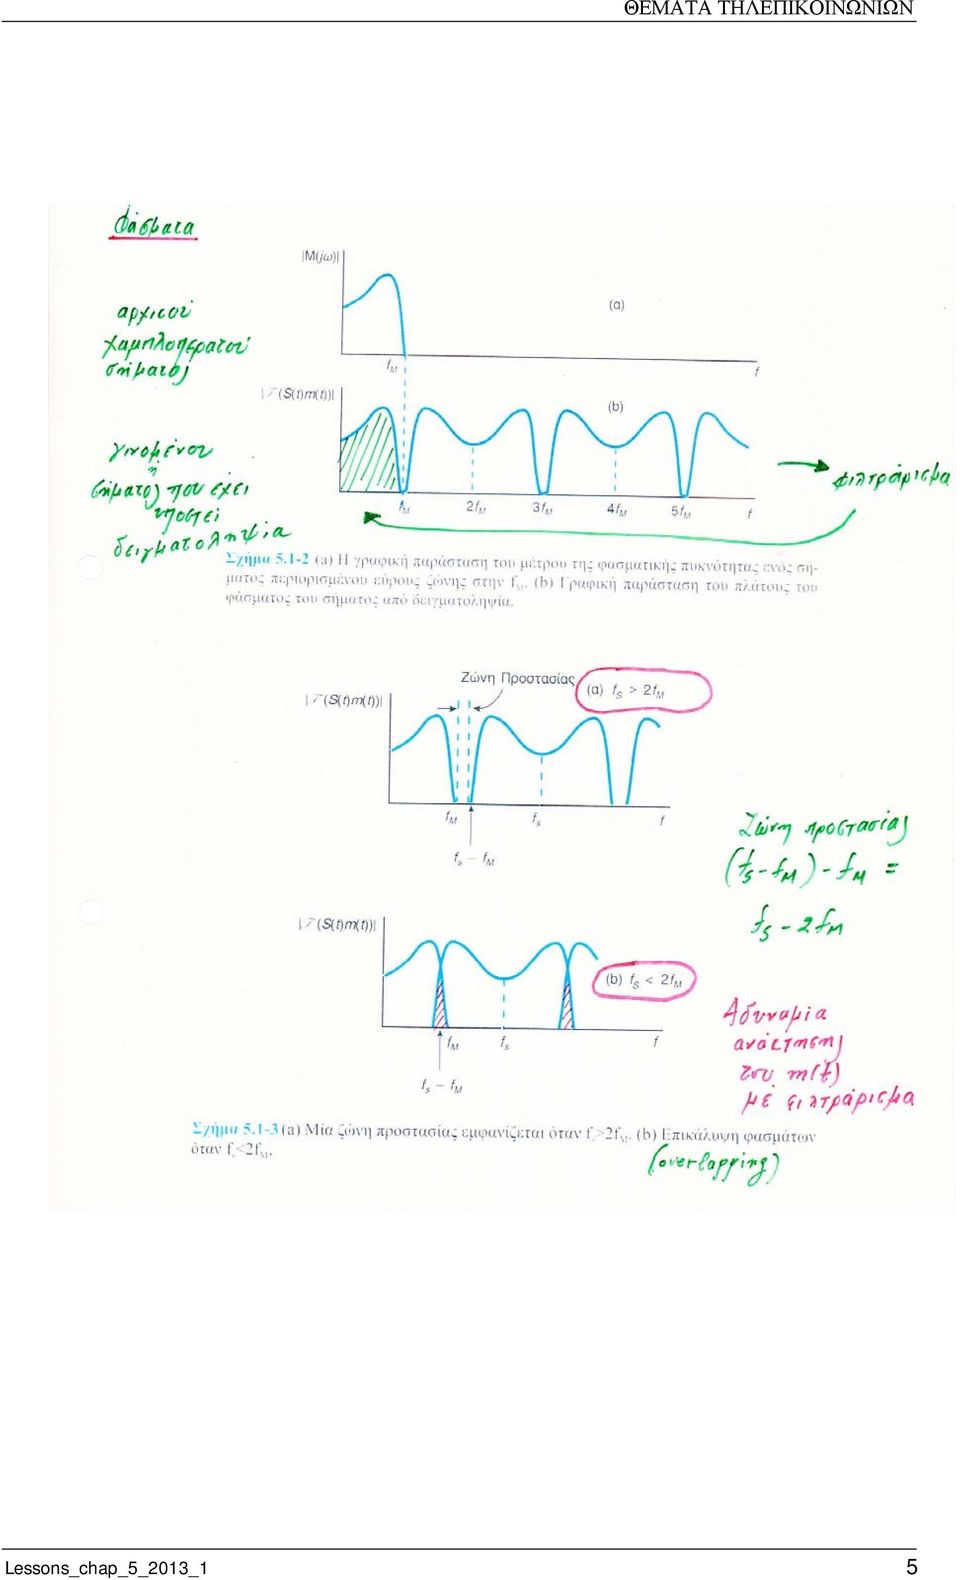 ΘΕΜΑΤΑ ΤΗΛΕΠΙΚΟΙΝΩΝΙΩΝ
Φάσματα
|M(jω)|
(α)
αρχικού
χαμηλοπερατού
σήματος
f_M
f
|ℱ(S(t)m(t))|
(b)
γινομένου
ή
σήματος που έχει
υποστεί
δειγματοληψία
φιλτράρισμα
f_M 2f_M 3f_M 4f_M 5f_M f
Σχήμα 5.1-2 (a) Η γραφική παράσταση του μέτρου της φασματικής πυκνότητας ενός σή-
ματος περιορισμένου εύρους ζώνης στην f_M. (b) Γραφική παράσταση του πλάτους του
φάσματος του σήματος από δειγματοληψία.
Ζώνη Προστασίας
(α) f_S > 2f_M
|ℱ(S(t)m(t))|
f_M f_s f
f_s - f_M
Ζώνη προστασίας
(f_s-f_M)-f_M =
f_s - 2f_M
|ℱ(S(t)m(t))|
(b) f_S < 2f_M
f_M f_s f
f_s - f_M
Αδυναμία
ανάκτησης
του m(t)
με φιλτράρισμα
Σχήμα 5.1-3 (a) Μία ζώνη προστασίας εμφανίζεται όταν f_s>2f_M. (b) Επικάλυψη φασμάτων
όταν f_s<2f_M.
(overlapping)
Lessons_chap_5_2013_1 5